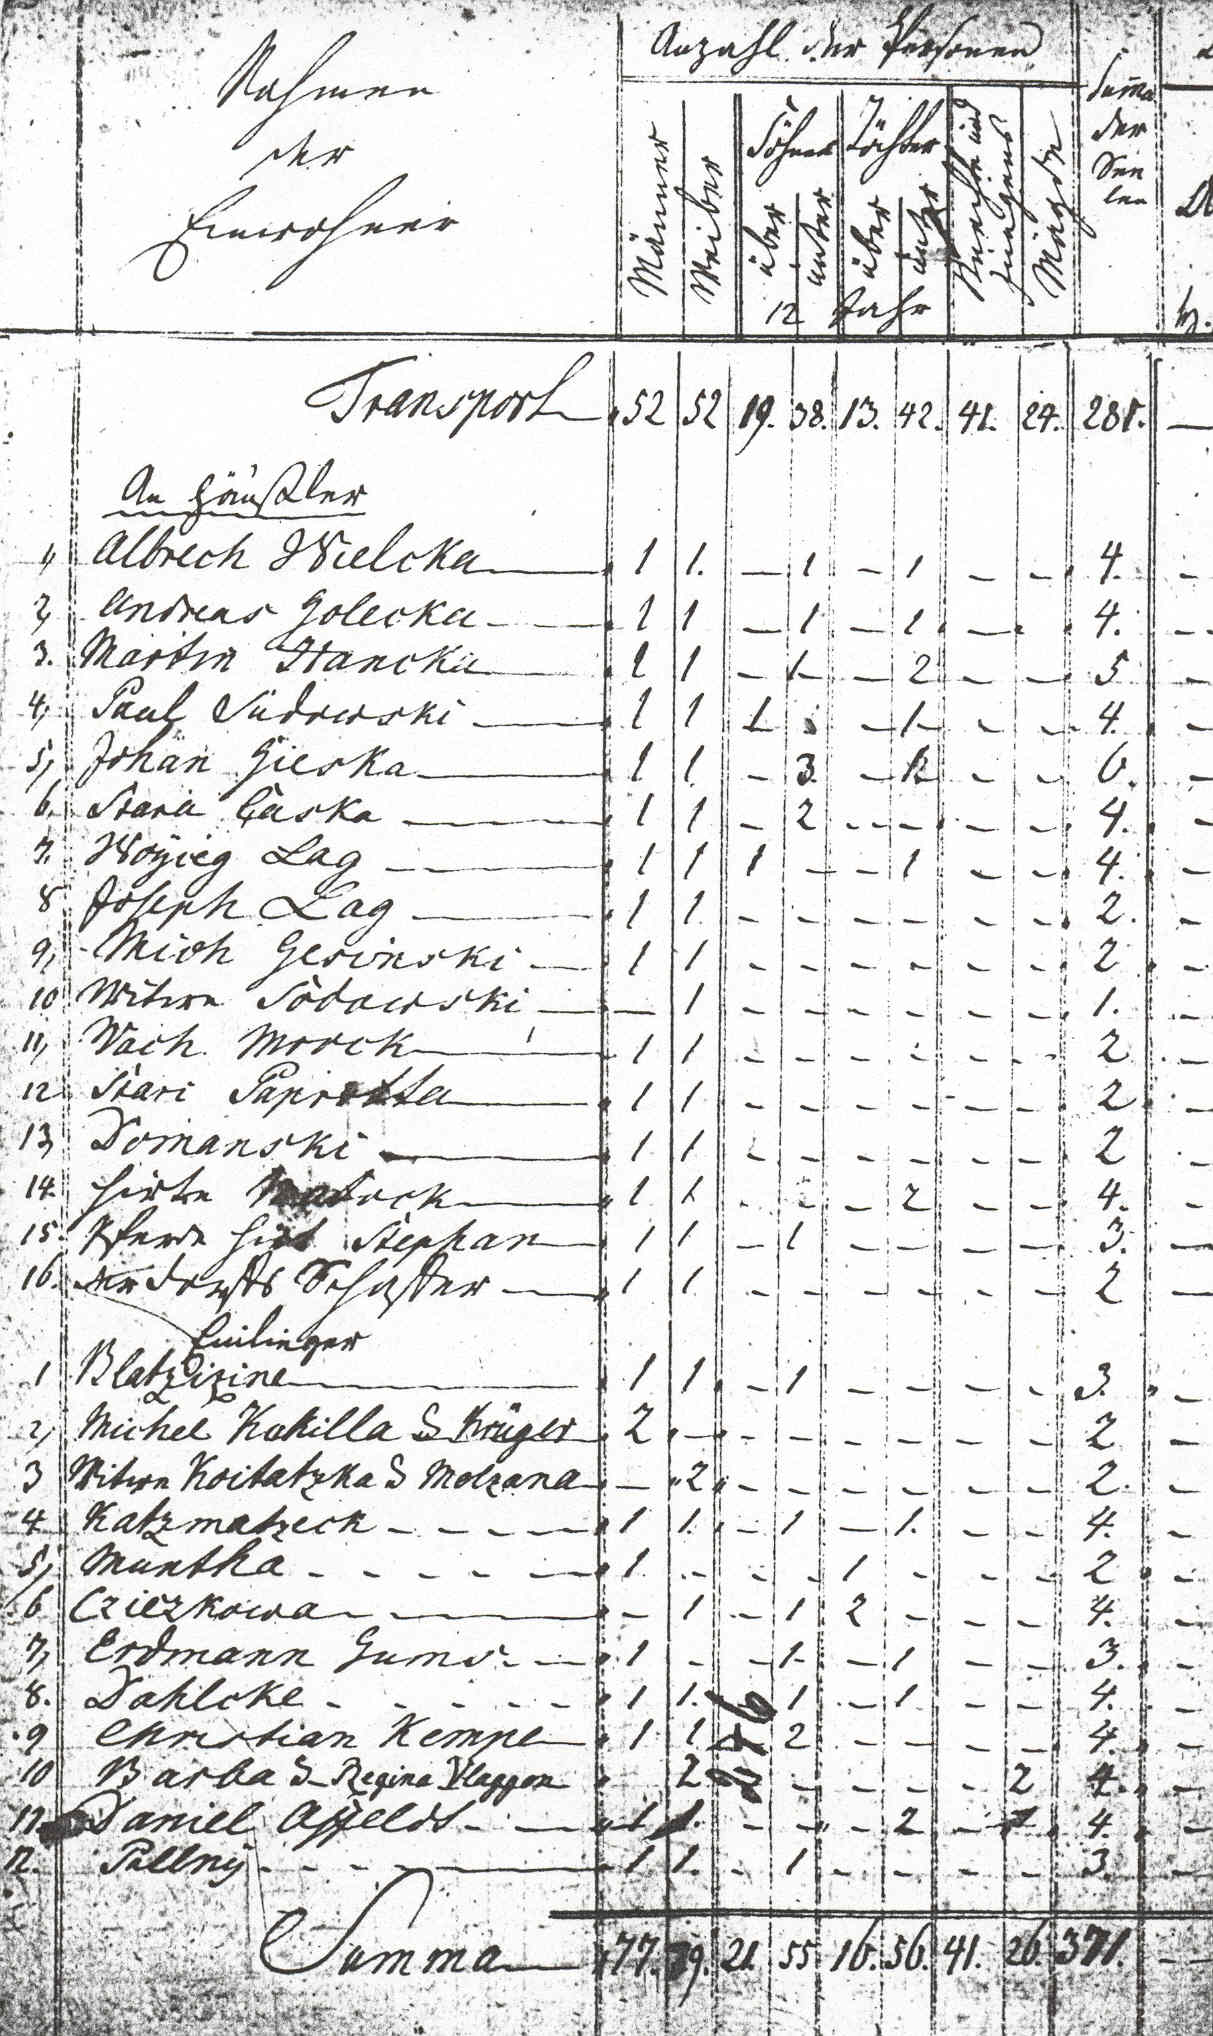 Nahmen
der
Einwohner
Anzahl der Personen
Männer
Weiber
Söhne
Töchter
über
unter
über
unter
12 Jahr
Knechte und
Jungens
Mägde
Suma
der
See
len
Transport 52 52 19. 38. 13. 42. 41. 24. 281. —
An Häußler
1, Albrech Wielcka 1 1. — 1 — 1 — — 4. —
2, Andreas Golecka 1 1 — 1 — 1. — . 4. —
3. Martin Stancka 1 1 — 1 — 2 — — 5 —
4, Paul Sudowski 1 1 1 — 1 — — 4. —
5, Johan Gieska 1 1 — 3. — — — 6. —
6. Stara Caska 1 1 — 2 — — — — 4. —
7. Woyieg Lag 1 1 1 — — 1 — — 4. —
8 Joseph Lag 1 1. — — — — — — 2. —
9, Mich Gesinski 1 1 — — — — — — 2 —
10 Witwe Sodowski — 1 — — — — — — 1. —
11, Wach Mrock 1 1 — — — — — — 2 —
12 Stari Paprotta 1 1 — — — — — — 2 —
13, Domanski 1 1 — — — — — — 2 —
14. Hirte 1 1 — — — 2 — — 4. —
15. Pferde Hirt Stephan 1 1 — 1 — — — — 3. —
16. Schäffer 1 1 — — — — — — 2 —
Einlieger
1 Blatzizine 1 1 — 1 — — — — 3. —
2, Michel Kakilla & Krüger 2 — — — — — — — 2 —
3 Witwe Koitatzka & Molzana — 2 — — — — — — 2. —
4 Katzmatzeck 1 1. — 1 — 1. — — 4. —
5, Muntha 1 — — — 1 — — — 2 —
6 Cziezkowa — 1 — 1 2 — — — 4. —
7, Erdmann Gums 1 — — 1 — 1 — — 3. —
8. Dahlcke 1 1. 1 — 1 — — 4. —
9 Christian Kempe 1 1 2 — — — — 4. —
10 Barba & Regina Vlaggon 2 — — — — 2 4. —
11. Daniel Affeldt 1 1. — — — 2 — 4. —
12. Pallny 1 1. — 1 — — — — 3. —
246
Summa 77. 79. 21. 55 16. 56. 41. 26. 371. —